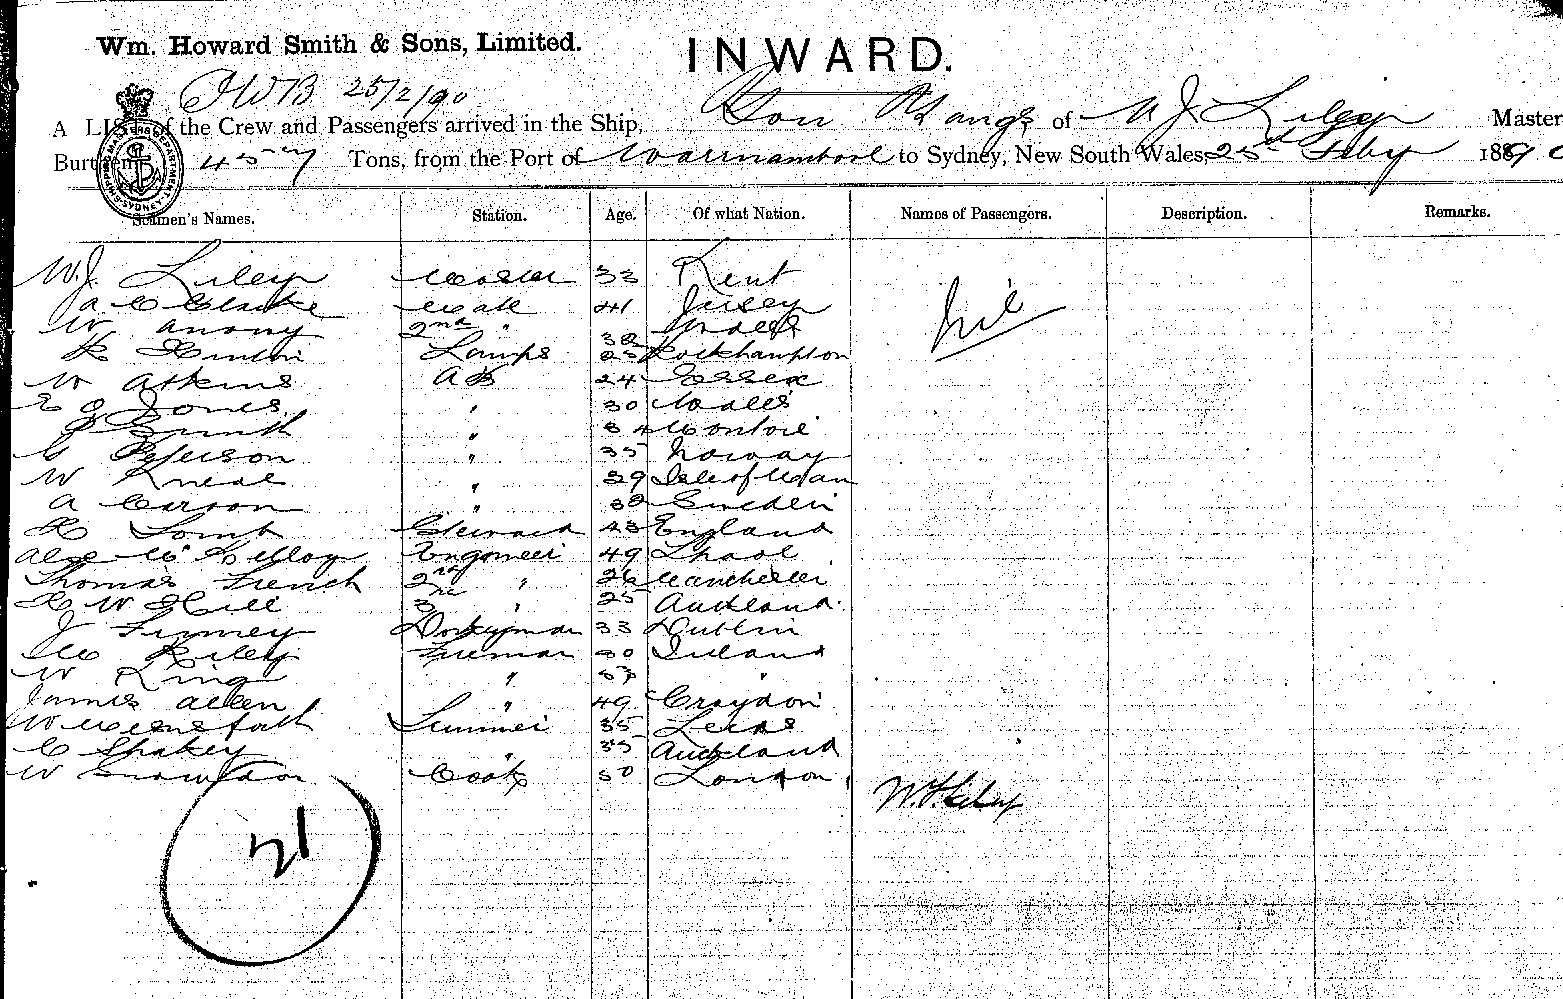 Wm. Howard Smith & Sons, Limited.
INWARD.
25/2/90
A LIST of the Crew and Passengers arrived in the Ship, of W J Riley Master
Burthen 457 Tons, from the Port of Warrnambool to Sydney, New South Wales, 25th Feby 1890
Seamen's Names. Station. Age. Of what Nation. Names of Passengers. Description. Remarks.
W.J. Riley Master 33 Kent
A C Clarke Mate 41 Jersey nil
W 2nd " 32 Wales
Lamps 25 Rockhampton
W Atkins AB 24 Essex
E J Jones " 30 Wales
J Smith " 34
G Peterson " 35 Norway
W Kneal " 39 Isle of Man
A Carson " 32 Sweden
Lomb Steward 43 England
Alex Engineer 49 Lpool
Thomas French 2nd " 26 Manchester
W Hill 3 " 25 Auckland
J Finney Donkeyman 33 Dublin
Riley Fireman 30 Ireland
W King " "
James Allen " 49 Croydon
W 35 Leeds
C Shakey " 35 Auckland
W Snowdon Cook 50 London
21